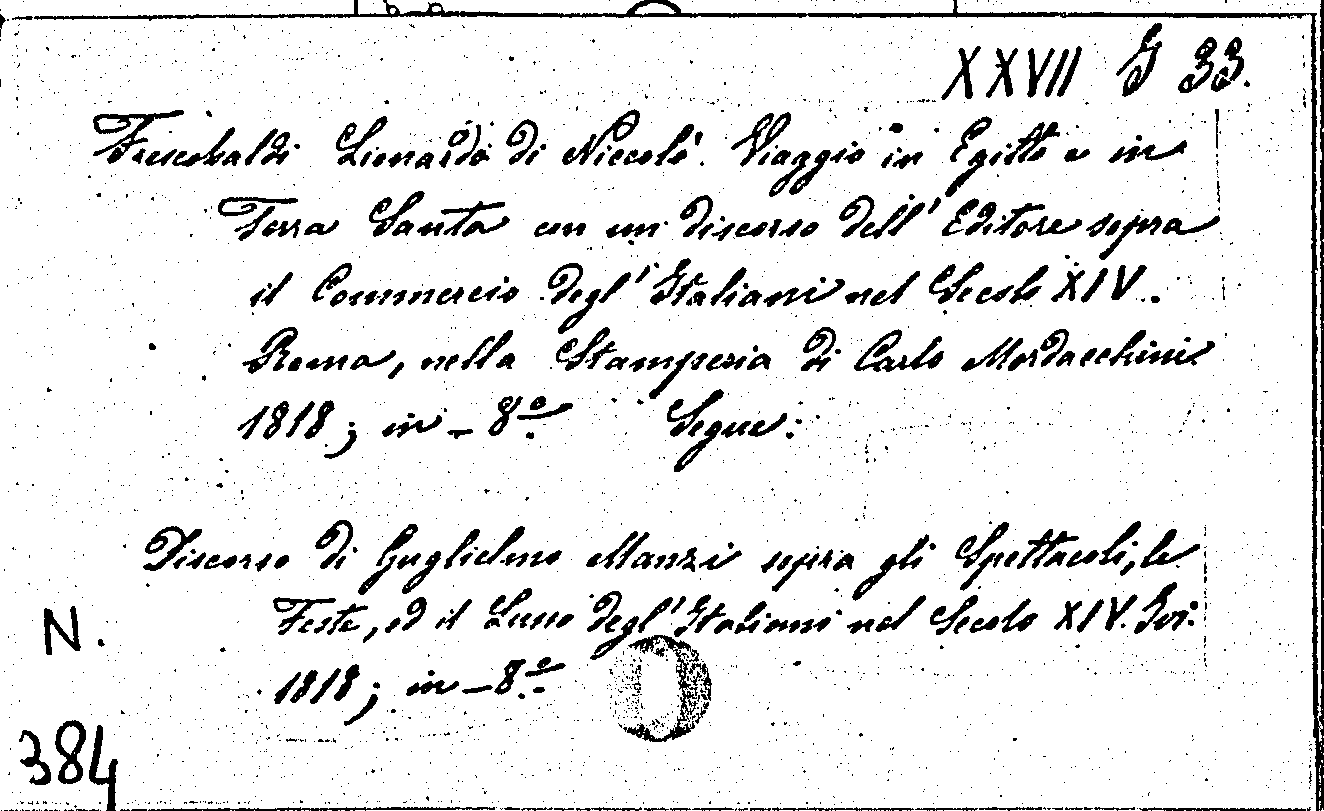 XXVII G 33.
Frescobaldi Lionardo di Niccolò. Viaggio in Egitto e in
Terra Santa con un discorso dell' Editore sopra
il Commercio degl' Italiani nel Secolo XIV.
Roma, nella Stamperia di Carlo Mordacchini
1818; in-8º. Segue:
Discorso di Guglielmo Manzi sopra gli Spettacoli, le
Feste, ed il Lusso degl' Italiani nel Secolo XIV. Ivi.
1818; in-8º.
N.
384